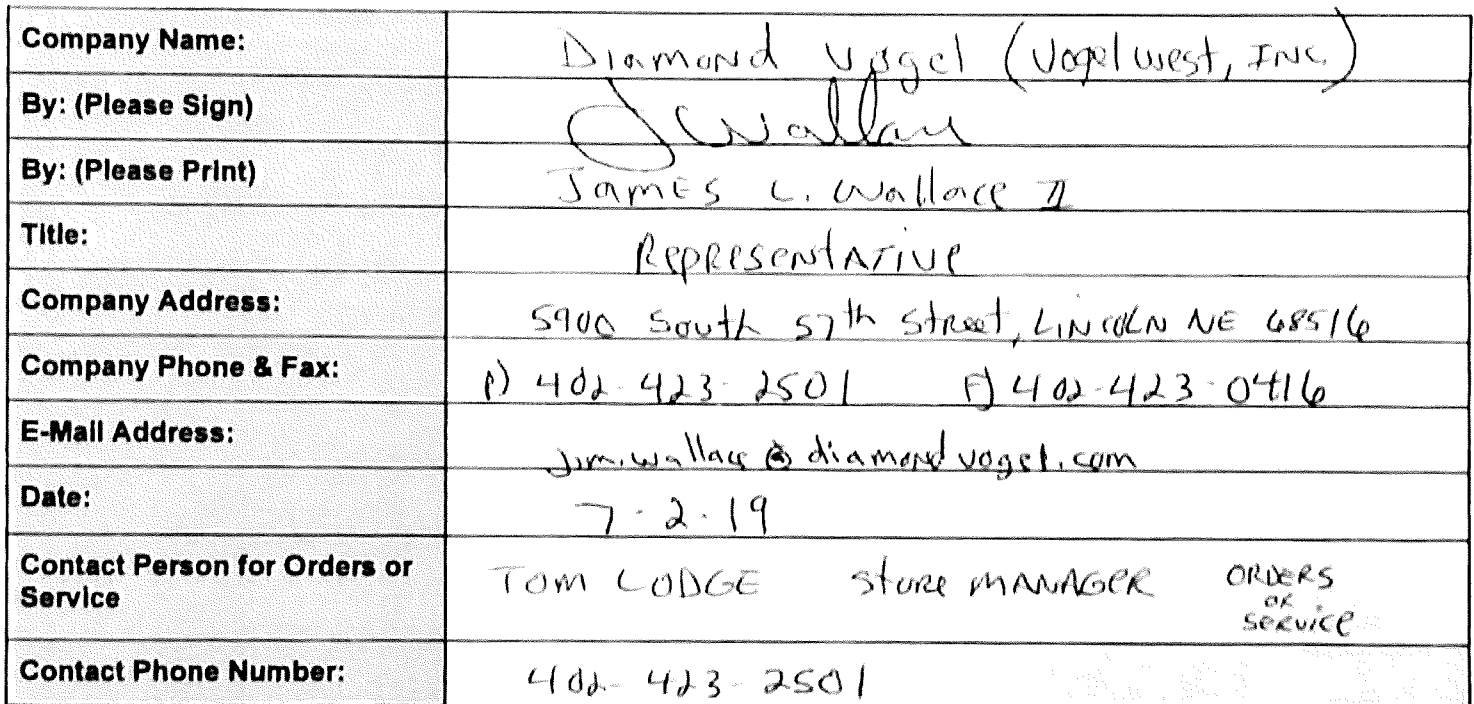 Company Name: Diamond Vogel (Vogel West, INC.)
By: (Please Sign) J Wallace
By: (Please Print) JamEs L. Wallace II
Title: RepResentATive
Company Address: 5900 South 57th Street, LINCOLN NE 68516
Company Phone & Fax: P) 402-423-2501 F) 402-423-0416
E-Mail Address: jim.wallace@diamondvogel.com
Date: 7-2-19
Contact Person for Orders or
Service
TOM LODGE Store MANAGER ORDERS
OR
SERVICE
Contact Phone Number: 402-423-2501